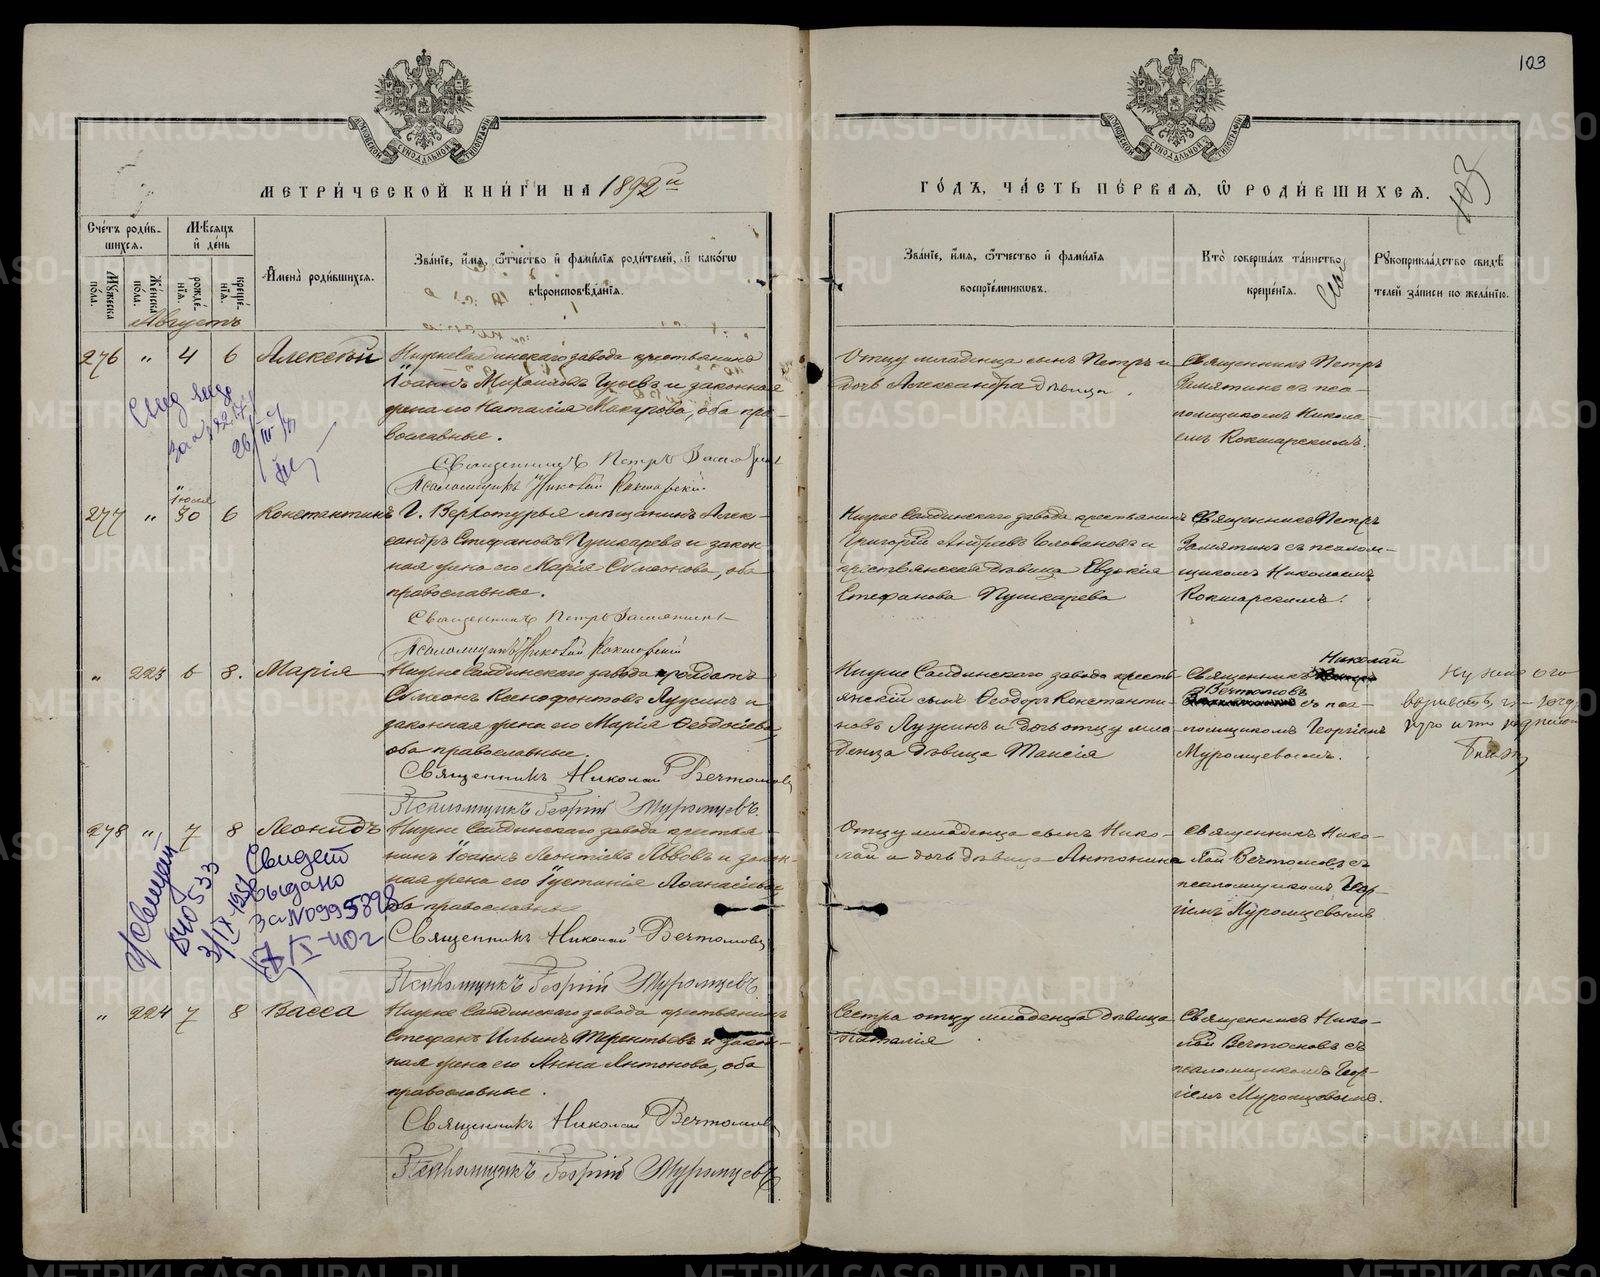 103
МЕТРИ́ЧЕСКОЙ КНИ́ГИ НА 1892 й
ГО́ДЪ, ЧА́СТЬ ПЕ́РВАЯ, Ѿ РОДИ́ВШИХСЯ.
103
Сче́тъ роди́в-
шихся.
Мѣ́сяцъ
и҆ де́нь
Мꙋ́жеска по́ла.
Же́нска по́ла.
рожде́-
нїя.
креще́-
нїя.
И҆мена̀ роди́вшихся.
Зва́нїе, и҆́мя, ѻ҆́тчество и҆ фами́лїя роди́телей, и҆ како́гѡ
вѣроисповѣ́данїя.
Зва́нїе, и҆́мя, ѻ҆́тчество и҆ фами́лїя
воспрїе́мникѡвъ.
Кто̀ соверша́лъ та́инство
креще́нїя.
Рꙋкоприкла́дство свидѣ́-
телей за́писи по жела́нїю.
Августъ
276 „ 4 6 Алексѣй
Нижнесалдинскаго завода крестьянинъ
Іоаннъ Михаиловъ Гуревъ и законная
жена его Наталія Макарова, оба пра-
вославные.
Священникъ Петръ Замятинъ
Псаломщикъ Николай Кокшарскій
Отцу младенца сынъ Петръ и
дочь Александра дѣвица.
Священникъ Петръ
Замятинъ съ пса-
ломщикомъ Никола-
емъ Кокшарскимъ.
26/III
Іюля
277 „ 30 6 Константинъ
Г. Верхотурья мѣщанинъ Алек-
сандръ Стефановъ Пушкаревъ и закон
ная жена его Марія Симеонова, оба
православные.
Священникъ Петръ Замятинъ
Псаломщикъ Николай Кокшарскій
Нижне Салдинскаго завода крестьянинъ
Григорій Андреевъ Головановъ и
крестьянская дѣвица Евдокія
Стефанова Пушкарева
Священникъ Петръ
Замятинъ съ псалом-
щикомъ Николаемъ
Кокшарскимъ.
„ 223 6 8. Марія
Нижне Салдинскаго завода солдатъ
Симеонъ Ксенофонтовъ Лузинъ и
законная жена его Марія Феодосіева,
оба православные.
Священникъ Николай Вечтомовъ
Псаломщикъ Георгій Муромцевъ.
Нижне Салдинскаго завода кресть
янскій сынъ Феодоръ Константи-
новъ Лузинъ и дочь отцу мла
денца дѣвица Таисія
Николай
Священникъ
Вечтомовъ
съ пса-
ломщикомъ Георгіемъ
Муромцевымъ.
278 „ 7 8 Леонидъ
Нижне Салдинскаго завода крестья
нинъ Іоаннъ Леонтіевъ Львовъ и закон-
ная жена его Іустинія Аѳанасіева,
оба православные
Священникъ Николай Вечтомовъ
Псаломщикъ Георгій Муромцевъ.
Отцу младенца сынъ Нико-
лай и дочь дѣвица Антонина
Священникъ Нико-
лай Вечтомовъ съ
псаломщикомъ Геор-
гіемъ Муромцевымъ
840533
3/IX-1951
Свидет
выдано
За №995898
17/I-40 г
„ 224 7 8 Васса
Нижне Салдинскаго завода крестьянинъ
Стефанъ Ильинъ Терентьевъ и закон-
ная жена его Анна Антонова, оба
православные.
Священникъ Николай Вечтомовъ
Псаломщикъ Георгій Муромцевъ
Сестра отцу младенца дѣвица
Наталія
Священникъ Нико-
лай Вечтомовъ съ
псаломщикомъ Геор-
гіемъ Муромцевымъ.
METRIKI.GASO-URAL.RU